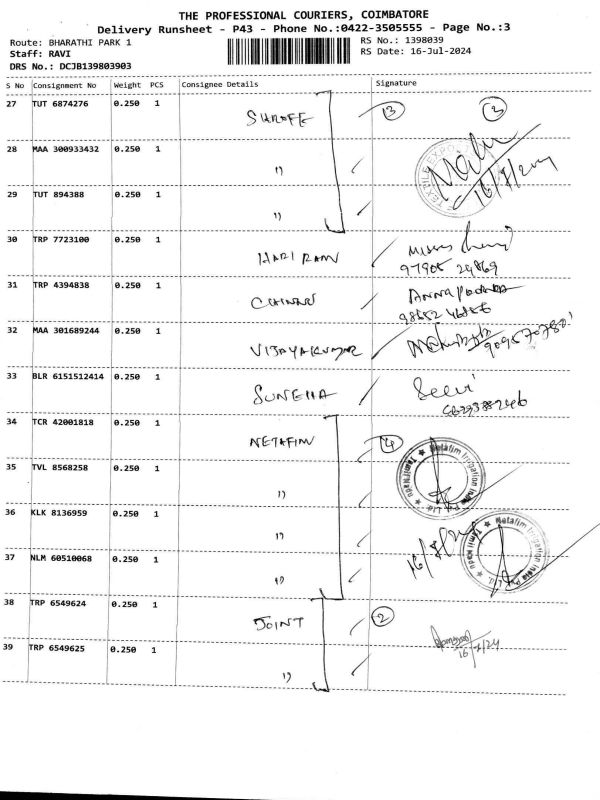 THE PROFESSIONAL COURIERS, COIMBATORE
Delivery Runsheet - P43 - Phone No.:0422-3505555 - Page No.:3
Route: BHARATHI PARK 1
RS No.: 1398039
Staff: RAVI
RS Date: 16-Jul-2024
DRS No.: DCJB139803903
S No Consignment No Weight PCS Consignee Details Signature
27 TUT 6874276 0.250 1 SHROFF 3 3
28 MAA 300933432 0.250 1 "
TEXTILE EXPO
16/7/2024
29 TUT 894388 0.250 1 "
30 TRP 7723100 0.250 1 HARI RAM
97905 24869
31 TRP 4394838 0.250 1
32 MAA 301689244 0.250 1 VIJAYAKUMAR
33 BLR 6151512414 0.250 1
34 TCR 42001818 0.250 1 NETAFIM 4
Netafim Irrigation India Pvt Ltd. ★ Tamil Nadu ★
35 TVL 8568258 0.250 1 "
36 KLK 8136959 0.250 1 "
16/7/24
Netafim Irrigation India Pvt Ltd. ★ Tamil Nadu ★
37 NLM 60510068 0.250 1 "
38 TRP 6549624 0.250 1 JOINT 2
16/7/24
39 TRP 6549625 0.250 1 "